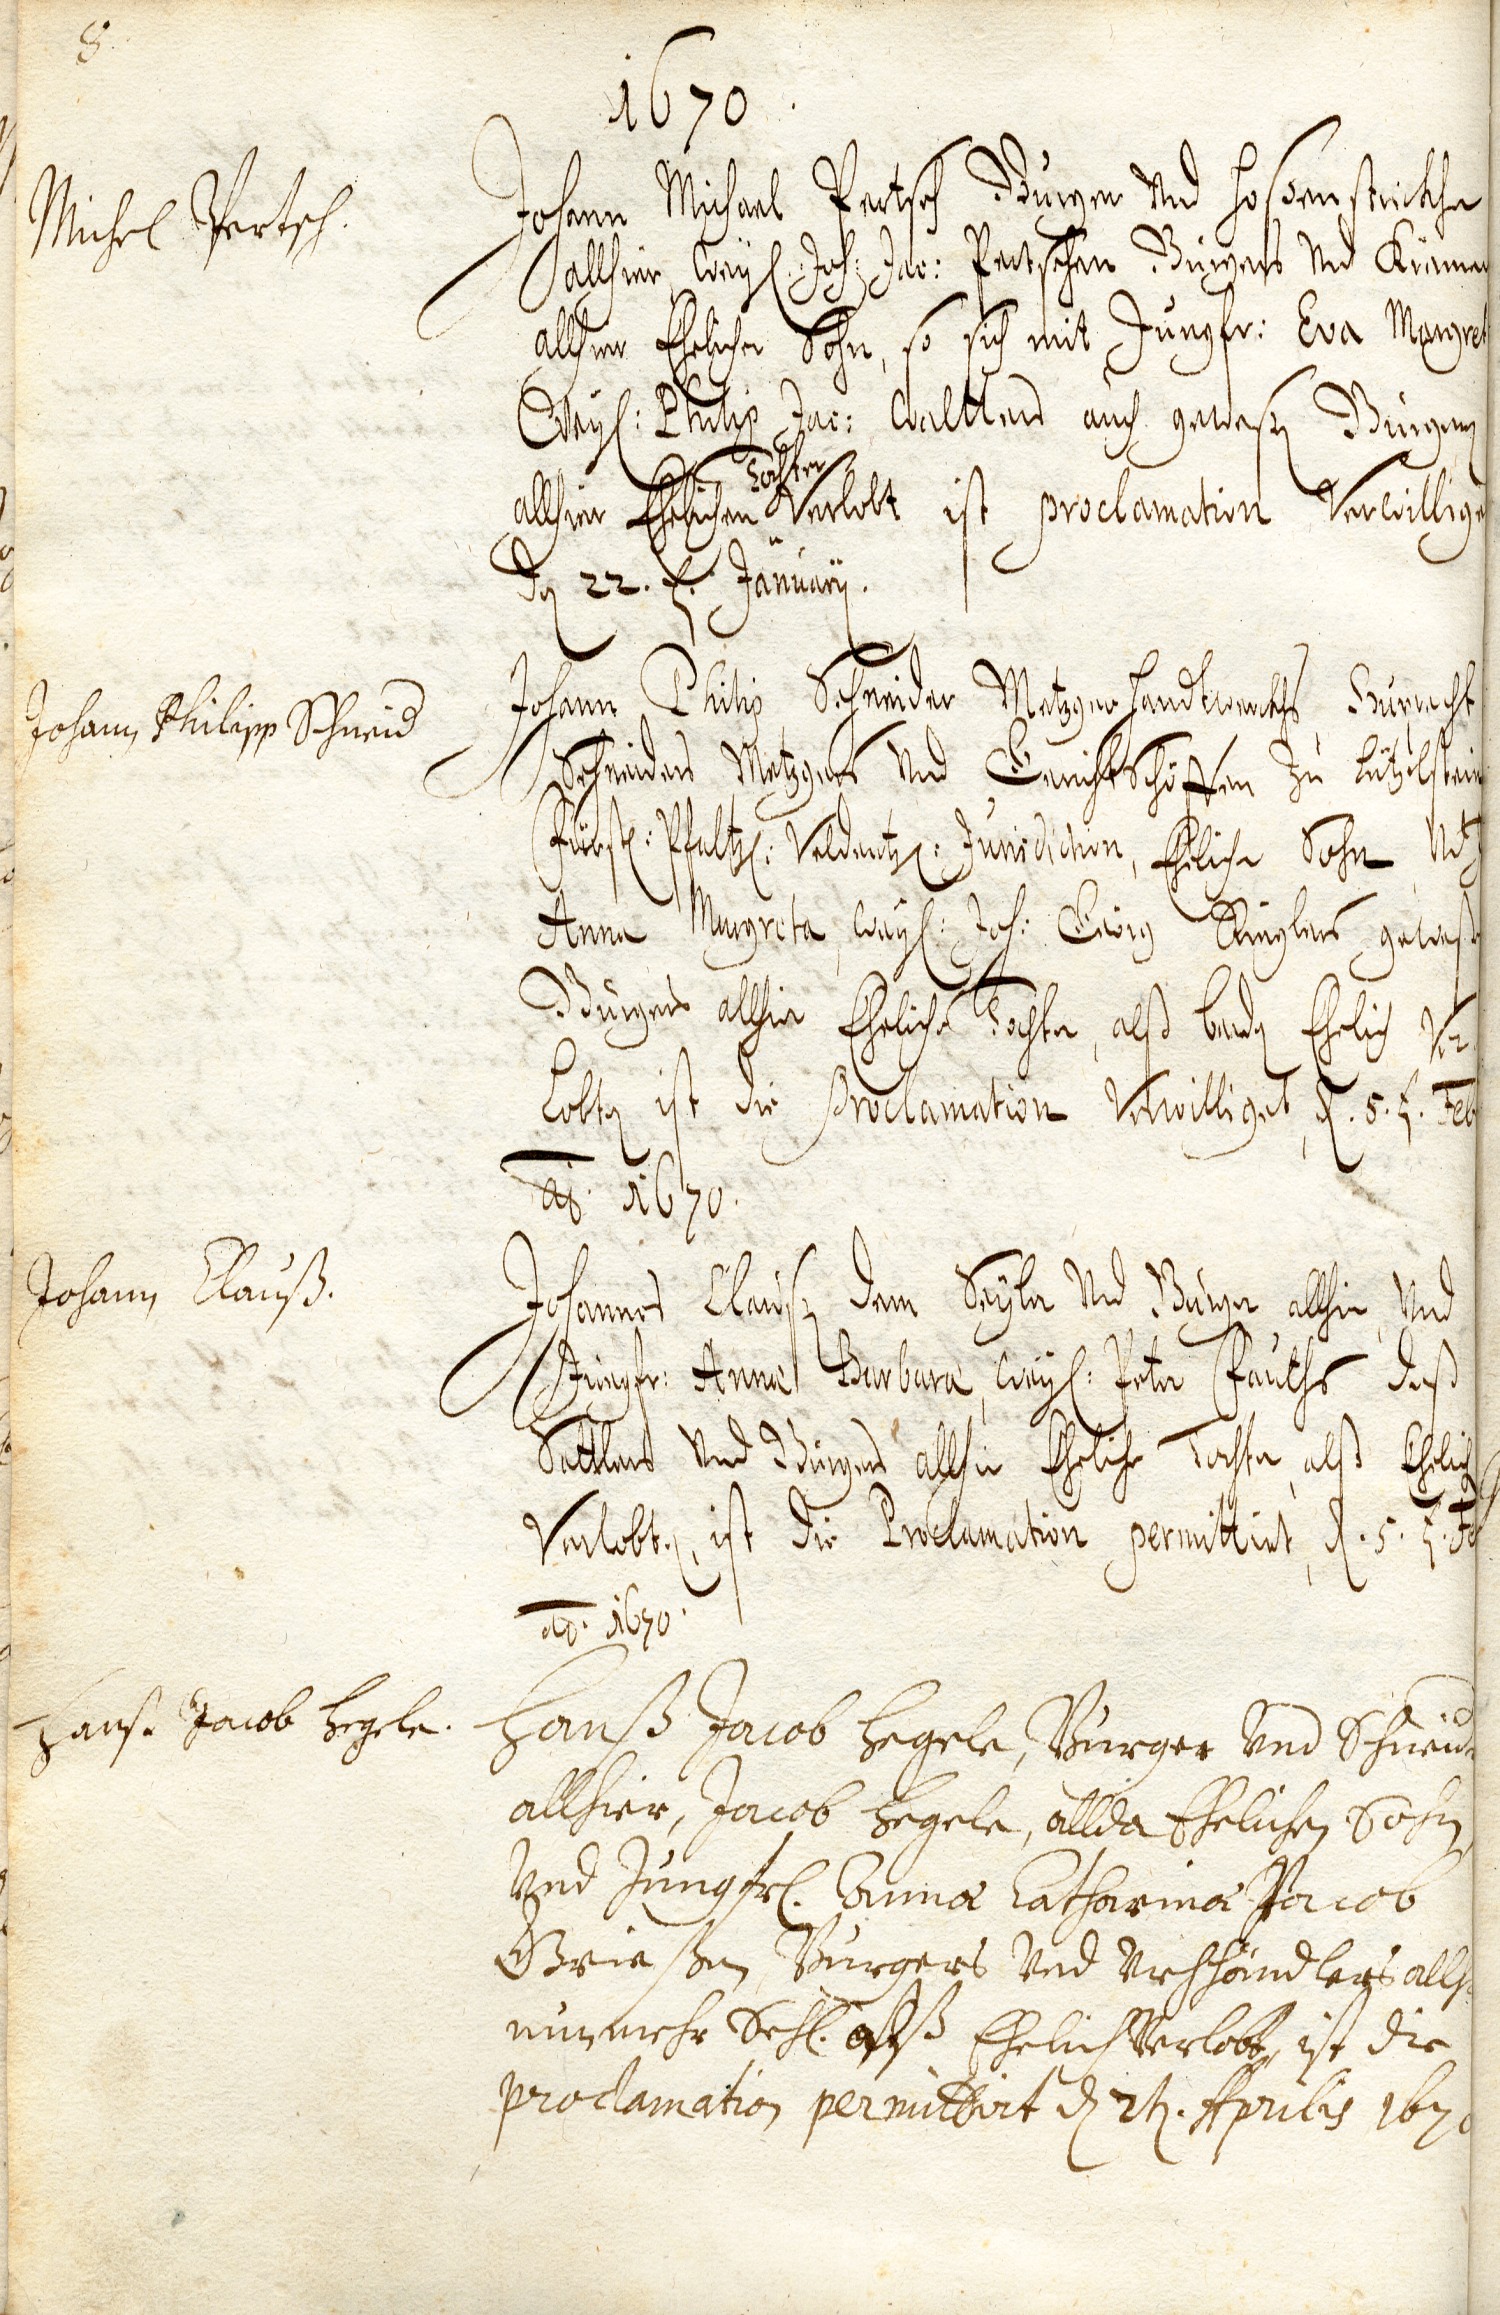 8.
1670.
Michel Pertsch.
Johann Michael Pertsch Burger Vnd Hoßenstrickher
allhier, Weyl. Joh: Jac: Pertschen Burgers Vnd Krämers
allhier Ehelicher Sohn, so sich mit Jungfr: Eva Margret
Weyl: Philip Jac: Walters auch geweßn Burgers
allhier Ehelichen Tochter Verlobt ist proclamation Verwilliget
dn 22. t. January.
Johann Philipp Schneid
Johann Philip Schneider Metzger Handtwerckhs,
Schneiders Metzgers Vnd Gerichtschöffen zu Lützelstein
Fürstl: Pfaltz: Veldentz: Jurisdiction, Ehelicher Sohn, Vnd
Anna Margreta, Weyl: Joh: Georg geweßn
Burgers allhier Eheliche Tochter, alß beede Ehelich Ver
Lobte ist die Proclamation Verwilliget, d. 5. t. Feb
ao. 1670.
Johann Clauß.
Johannes Claußn dem Seyler Vnd Burger allhier, Vnd
Jungfr: Anna Barbara, Weyl: Peter Fauths deß
Sattlers Vnd Burgers allhier Eheliche Tochter, alß Ehelich
Verlobte, ist die Proclamation permittirt, d. 5. t. Feb
ao. 1670.
Hanß Jacob Hegele.
Hanß Jacob Hegele, Burger Vnd Schneid
allhier, Jacob Hegele, allda Ehelichen Sohn
Vnd Jungfrl. Anna Catharina Jacob
Burgers Vnd allh.
nunmehr Sehl. alß Ehelich Verlobte, ist die
proclamation permittirt d Aprilis 1670